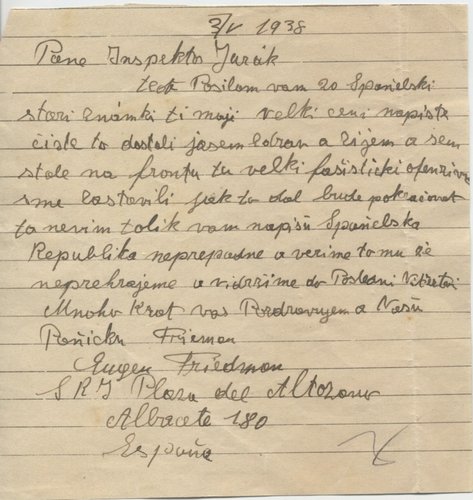 3/V 1938
Pane Inspektor Jurák
teď Posilam vam 20 Španělski
stari známki ti maji velki ceni napiste
čiste to dostali jasem zdrav a žijem a sem
stale na frontu tu velki fašisticki ofenzivu
sme zastavili jak to dal bude pokračovat
to nevim tolik vam napišu Španělska
Republika nepropadne a verime tomu že
neprehrajeme a vidržime do Posledni Vitězstvi
Mnoho Krat vas Pozdravujem a Vašu
Paničku
Eugen Friedman
S R I Plaza del Altozano
Albacete 180
España